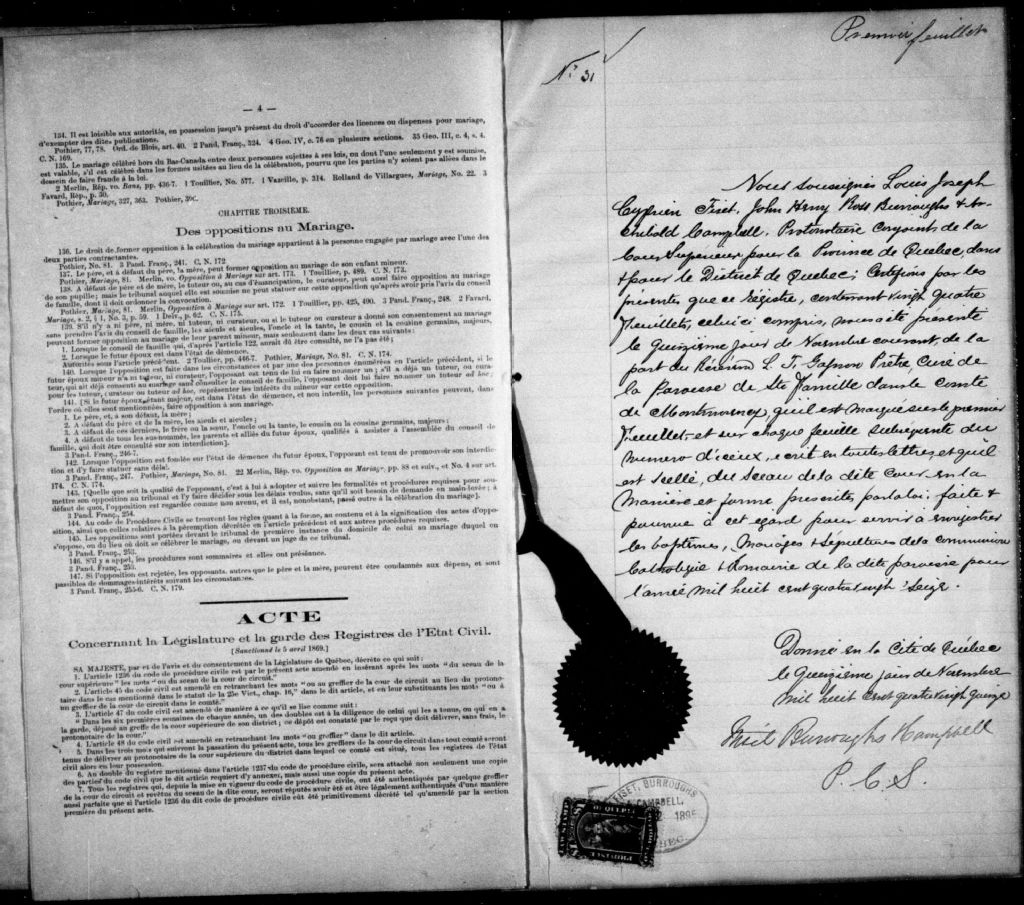 — 4 —
134. Il est loisible aux autorités, en possession jusqu'à présent du droit d'accorder des licences ou dispenses pour mariage,
d'exempter des dites publications.
Pothier, 77, 78. Ord. de Blois, art. 40. 2 Pand. Franç., 324. 4 Geo. IV, c. 76 en plusieurs sections. 35 Geo. III, c. 4, s. 4.
C. N. 169.
135. Le mariage célébré hors du Bas-Canada entre deux personnes sujettes à ses lois, ou dont l'une seulement y est soumise,
est valable, s'il est célébré dans les formes usitées au lieu de la célébration, pourvu que les parties n'y soient pas allées dans le
dessein de faire fraude à la loi.
2 Merlin, Rép. vo. Bans, pp. 436-7. 1 Toullier, No. 577. 1 Vazeille, p. 314. Rolland de Villargues, Mariage, No. 22. 3
Favard, Rép., p. 50.
Pothier, Mariage, 327, 363. Pothier, 39C.
CHAPITRE TROISIEME.
Des oppositions au Mariage.
136. Le droit de former opposition à la célébration du mariage appartient à la personne engagée par mariage avec l'une des
deux parties contractantes.
Pothier, No. 81. 3 Pand. Franç., 241. C. N. 172
137. Le père, et à défaut du père, la mère, peut former opposition au mariage de son enfant mineur.
Pothier, Mariage, 81. Merlin, vo. Opposition à Mariage sur art. 173. 1 Touillier, p. 489. C. N. 173.
138. A défaut de père et de mère, le tuteur ou, au cas d'émancipation, le curateur, peut aussi faire opposition au mariage
de son pupille; mais le tribunal auquel elle est soumise ne peut statuer sur cette opposition qu'après avoir pris l'avis du conseil
de famille, dont il doit ordonner la convocation.
Pothier, Mariage, 81. Merlin Opposition à Mariage sur art. 172. 1 Touillier, pp. 425, 490. 3 Pand. Franç., 248. 2 Favard,
Mariage, s. 2, § 1, No. 3, p. 59. 1 Delv., p. 62. C. N. 175.
139. S'il n'y a ni père, ni mère, ni tuteur, ni curateur, ou si le tuteur ou curateur a donné son consentement au mariage
sans prendre l'avis du conseil de famille, les aïeuls et aïeules, l'oncle et la tante, le cousin et la cousine germains, majeurs,
peuvent former opposition au mariage de leur parent mineur, mais seulement dans les deux cas suivants:
1. Lorsque le conseil de famille qui, d'après l'article 122, aurait dû être consulté, ne l'a pas été;
2. Lorsque le futur époux est dans l'état de démence.
Autorités sous l'article précédent. 2 Toullier, pp. 446-7. Pothier, Mariage, No. 81. C. N. 174.
140. Lorsque l'opposition est faite dans les circonstances et par une des personnes énumérées en l'article précédent, si le
futur époux mineur n'a ni tuteur, ni curateur, l'opposant est tenu de lui en faire nommer un; s'il a déjà un tuteur, ou curateur,
qui ait déjà consenti au mariage sans consulter le conseil de famille, l'opposant doit lui faire nommer un tuteur ad hoc,
pour les tuteur, curateur ou tuteur ad hoc, représenter les intérêts du mineur sur cette opposition.
141. [Si le futur époux étant majeur, est dans l'état de démence, et non interdit, les personnes suivantes peuvent, dans
l'ordre où elles sont mentionnées, faire opposition à son mariage.
1. Le père, et, à son défaut, la mère;
2. A défaut du père et de la mère, les aïeuls et aïeules;
3. A défaut de ces derniers, le frère ou la sœur, l'oncle ou la tante, le cousin ou la cousine germains, majeurs;
4. A défaut de tous les sus-nommés, les parents et alliés du futur époux, qualifiés à assister à l'assemblée du conseil de
famille, qui doit être consulté sur son interdiction].
3 Pand. Franç., 246-7.
142. Lorsque l'opposition est fondée sur l'état de démence du futur époux, l'opposant est tenu de promouvoir son interdiction
et d'y faire statuer sans délai.
3 Pand. Franç., 247. Pothier, Mariage, No. 81. 22 Merlin, Rép. vo. Opposition au Mariage, pp. 88 et suiv., et No. 4 sur art.
174. C. N. 174.
143. [Quelle que soit la qualité de l'opposant, c'est à lui à adopter et suivre les formalités et procédures requises pour soumettre
son opposition au tribunal et l'y faire décider sous les délais voulus, sans qu'il soit besoin de demande en main-levée; à
défaut de quoi, l'opposition est regardée comme non avenue, et il est, nonobstant, passé outre à la célébration du mariage].
3 Pand. Franç., 254.
144. Au code de Procédure Civile se trouvent les règles quant à la forme, au contenu et à la signification des actes d'opposition,
ainsi que celles relatives à la péremption décrétée en l'article précédent et aux autres procédures requises.
145. Les oppositions sont portées devant le tribunal de première instance du domicile de celui au mariage duquel on
s'oppose, ou du lieu où doit se célébrer le mariage, ou devant un juge de ce tribunal.
3 Pand. Franç., 253.
146. S'il y a appel, les procédures sont sommaires et elles ont préséance.
3 Pand. Franç., 253.
147. Si l'opposition est rejetée, les opposants, autres que le père et la mère, peuvent être condamnés aux dépens, et sont
passibles de dommages-intérêts suivant les circonstances.
3 Pand. Franç., 255-6. C. N. 179.
ACTE
Concernant la Législature et la garde des Registres de l'Etat Civil.
[Sanctionné le 5 avril 1869.]
SA MAJESTE, par et de l'avis et du consentement de la Législature de Québec, décrète ce qui suit:
1. L'article 1236 du code de procédure civile est par le présent acte amendé en insérant après les mots "du sceau de la
cour supérieure" les mots "ou du sceau de la cour de circuit."
2. L'article 45 du code civil est amendé en retranchant les mots "ou au greffier de la cour de circuit au lieu du protonotaire
dans le cas mentionné dans le statut de la 25e Vict., chap. 16," dans le dit article, et en leur substituant les mots "ou à
un greffier de la cour de circuit dans le comté."
3. L'article 47 du code civil est amendé de manière à ce qu'il se lise comme suit:
"Dans les six premières semaines de chaque année, un des doubles est à la diligence de celui qui les a tenus, ou qui en a
la garde, déposé au greffe de la cour supérieure de son district; ce dépôt est constaté par le reçu que doit délivrer, sans frais, le
protonotaire de la cour."
4. L'article 48 du code civil est amendé en retranchant les mots "ou greffier" dans le dit article.
5. Dans les trois mois qui suivront la passation du présent acte, tous les greffiers de la cour de circuit dans tout comté seront
tenus de délivrer au protonotaire de la cour supérieure du district dans lequel ce comté est situé, tous les registres de l'état
civil alors en leur possession.
6. Au double du registre mentionné dans l'article 1237 du code de procédure civile, sera attaché non seulement une copie
des parties du code civil que le dit article requiert d'y annexer, mais aussi une copie du présent acte.
7. Tous les registres qui, depuis la mise en vigueur du code de procédure civile, ont été authentiqués par quelque greffier
de la cour de circuit et revêtus du sceau de la dite cour, seront réputés avoir été et être légalement authentiqués d'une manière
aussi parfaite que si l'article 1236 du dit code de procédure civile eût été primitivement décrété tel qu'amendé par la section
première du présent acte.
Premier feuillet
N° 31
Nous soussignés Louis Joseph
Cyprien Fiset, John Henry Ross Burroughs & Ar-
chibald Campbell, Protonotaire conjoint de la
Cour Supérieure pour la Province de Quebec, dans
& pour le District de Quebec; Certifions par les
présentes que ce Régistre, contenant vingt quatre
Feuillets, celui ci compris, nous a été présenté
le Quinzième jour de Novembre courant, de la
part du Révérend L. T. Gagnon Prêtre, Curé de
la paroisse de Ste Famille dans le Comté
de Montmorency, qu'il est marqué sur le premier
Feuillet et sur chaque feuille subséquente du
numero d'iceux, ecrit en toutes lettres, et qu'il
est scellé, du Sceau de la dite Cour en la
Manière et forme prescrite par la loi faite &
pourvue à cet egard pour servir à enregistrer
les baptemes, Mariages & Sepultures de la communion
Catholique & Romaine de la dite paroisse pour
l'année Mil huit cent quatre vingt Seize.
Donné en la Cité de Québec
le Quinzième jour de Novembre
mil huit cent quatre vingt quinze
Fiset Burroughs & Campbell
P. C. S.
FISET, BURROUGHS
& CAMPBELL,
1895
QUEBEC